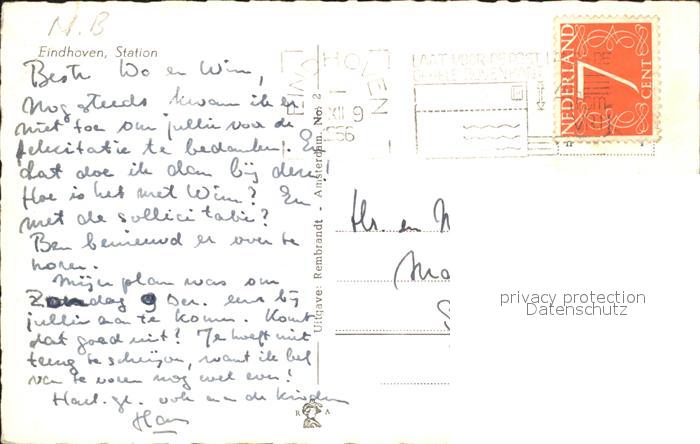 N.B
Eindhoven, Station
Beste Wo en Wim,
Nog steeds kwam ik er
niet toe om jullie voor de
felicitatie te bedanken. En
dat doe ik dan bij deze!
Hoe is het met Wim? En
met de sollicitatie?
Ben benieuwd er over te
horen.
Mijn plan was om
Zondag 9 Dec. eens bij
jullie aan te komen. Komt
dat goed uit? Je hoeft niet
terug te schrijven, want ik bel
van te voren nog wel even!
Hart. gr. ook aan de kinderen
Hans
Uitgave: Rembrandt - Amsterdam. No: 2
R A
EINDHOVEN
XII 9
1956
LAAT VOOR DE POST
NEDERLAND
7
CENT
Hr. en M
privacy protection
Datenschutz